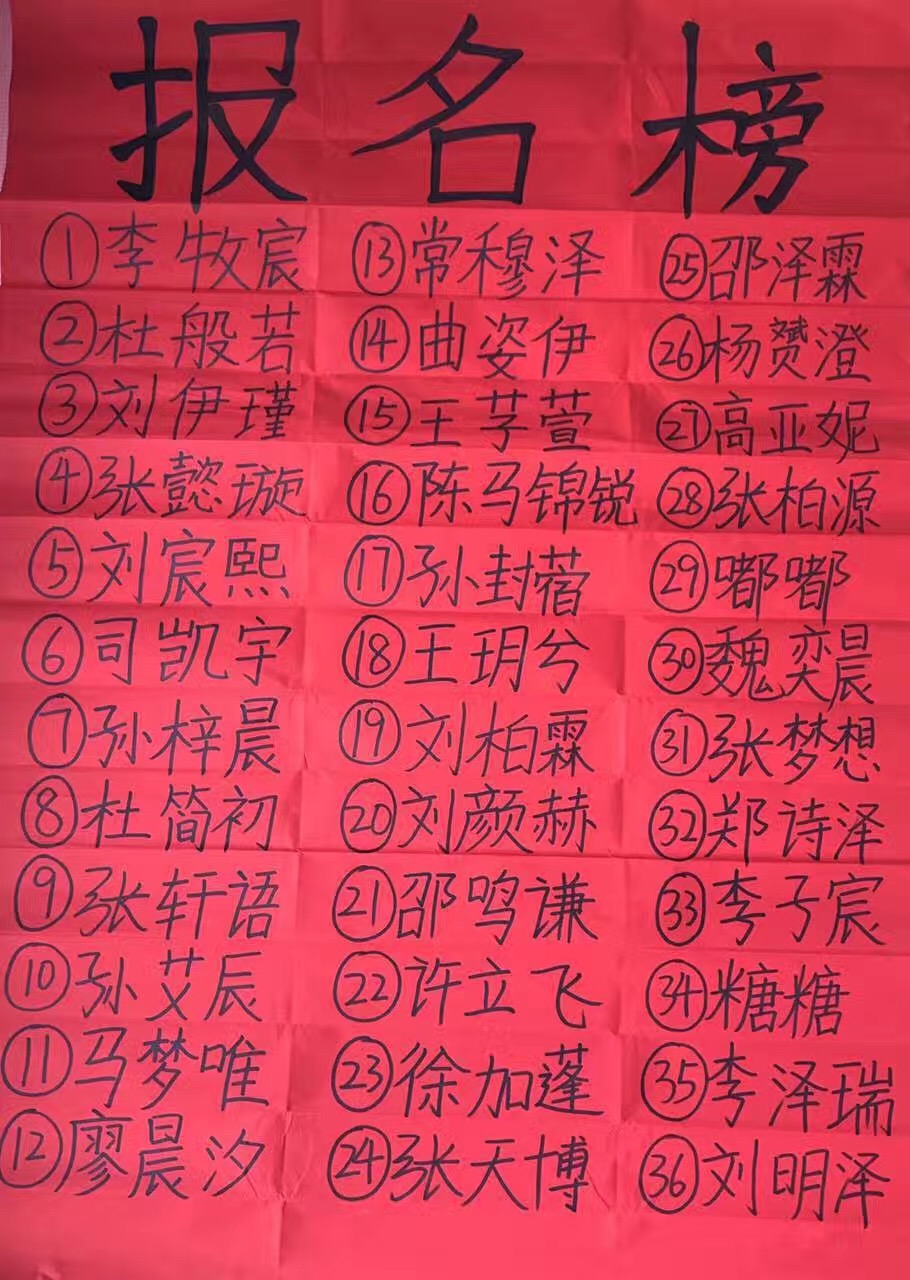 报名榜
①李牧宸
②杜般若
③刘伊瑾
④张懿璇
⑤刘宸熙
⑥司凯宇
⑦孙梓晨
⑧杜简初
⑨张轩语
⑩孙艾辰
⑪马梦唯
⑫廖晨汐
⑬常穆泽
⑭曲姿伊
⑮王芓萱
⑯陈马锦锐
⑰孙封蓿
⑱王玥兮
⑲刘柏霖
⑳刘颜赫
㉑邵鸣谦
㉒许立飞
㉓徐加蓬
㉔张天博
㉕邵泽霖
㉖杨赟澄
㉗高亚妮
㉘张柏源
㉙嘟嘟
㉚魏奕晨
㉛张梦想
㉜郑诗泽
㉝李子宸
㉞糖糖
㉟李泽瑞
㊱刘明泽